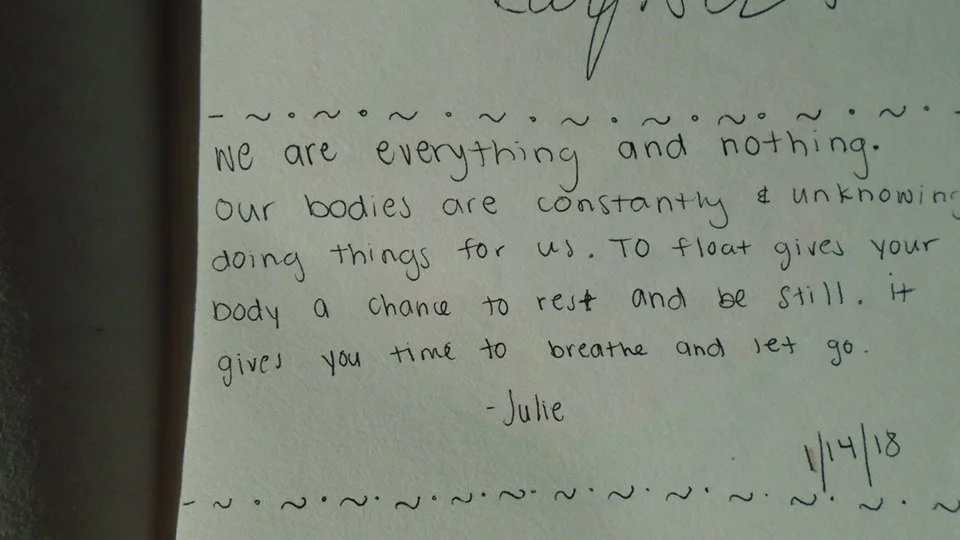 we are everything and nothing.
our bodies are constantly & unknowing
doing things for us. To float gives your
body a chance to rest and be still. it
gives you time to breathe and let go.
-Julie
1/14/18